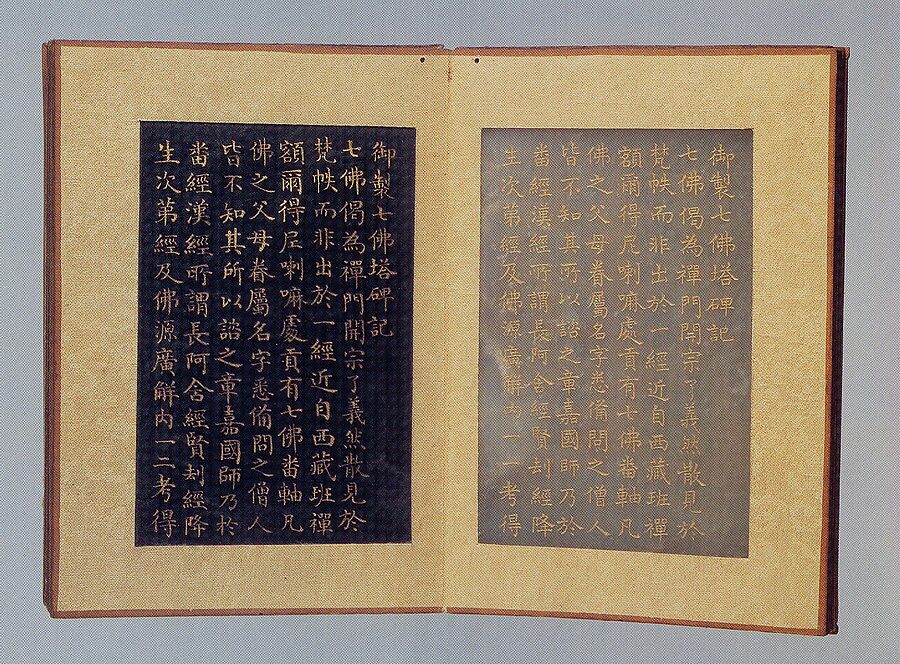 御製七佛塔碑記
七佛偈為禪門開宗了義然散見於
梵帙而非出於一經近自西藏班禪
額爾得尼喇嘛處貢有七佛畨軸凡
佛之父母眷屬名字悉俻問之僧人
皆不知其所以諮之章嘉國師乃於
畨經漢經所謂長阿含經賢刦經降
生次第經及佛源廣觧内一一考得
御製七佛塔碑記
七佛偈為禪門開宗了義然散見於
梵帙而非出於一經近自西藏班禪
額爾得尼喇嘛處貢有七佛畨軸凡
佛之父母眷屬名字悉俻問之僧人
皆不知其所以諮之章嘉國師乃扵
畨經漢經所謂長阿含經賢刦經降
生次第經及佛源廣觧内一二考得